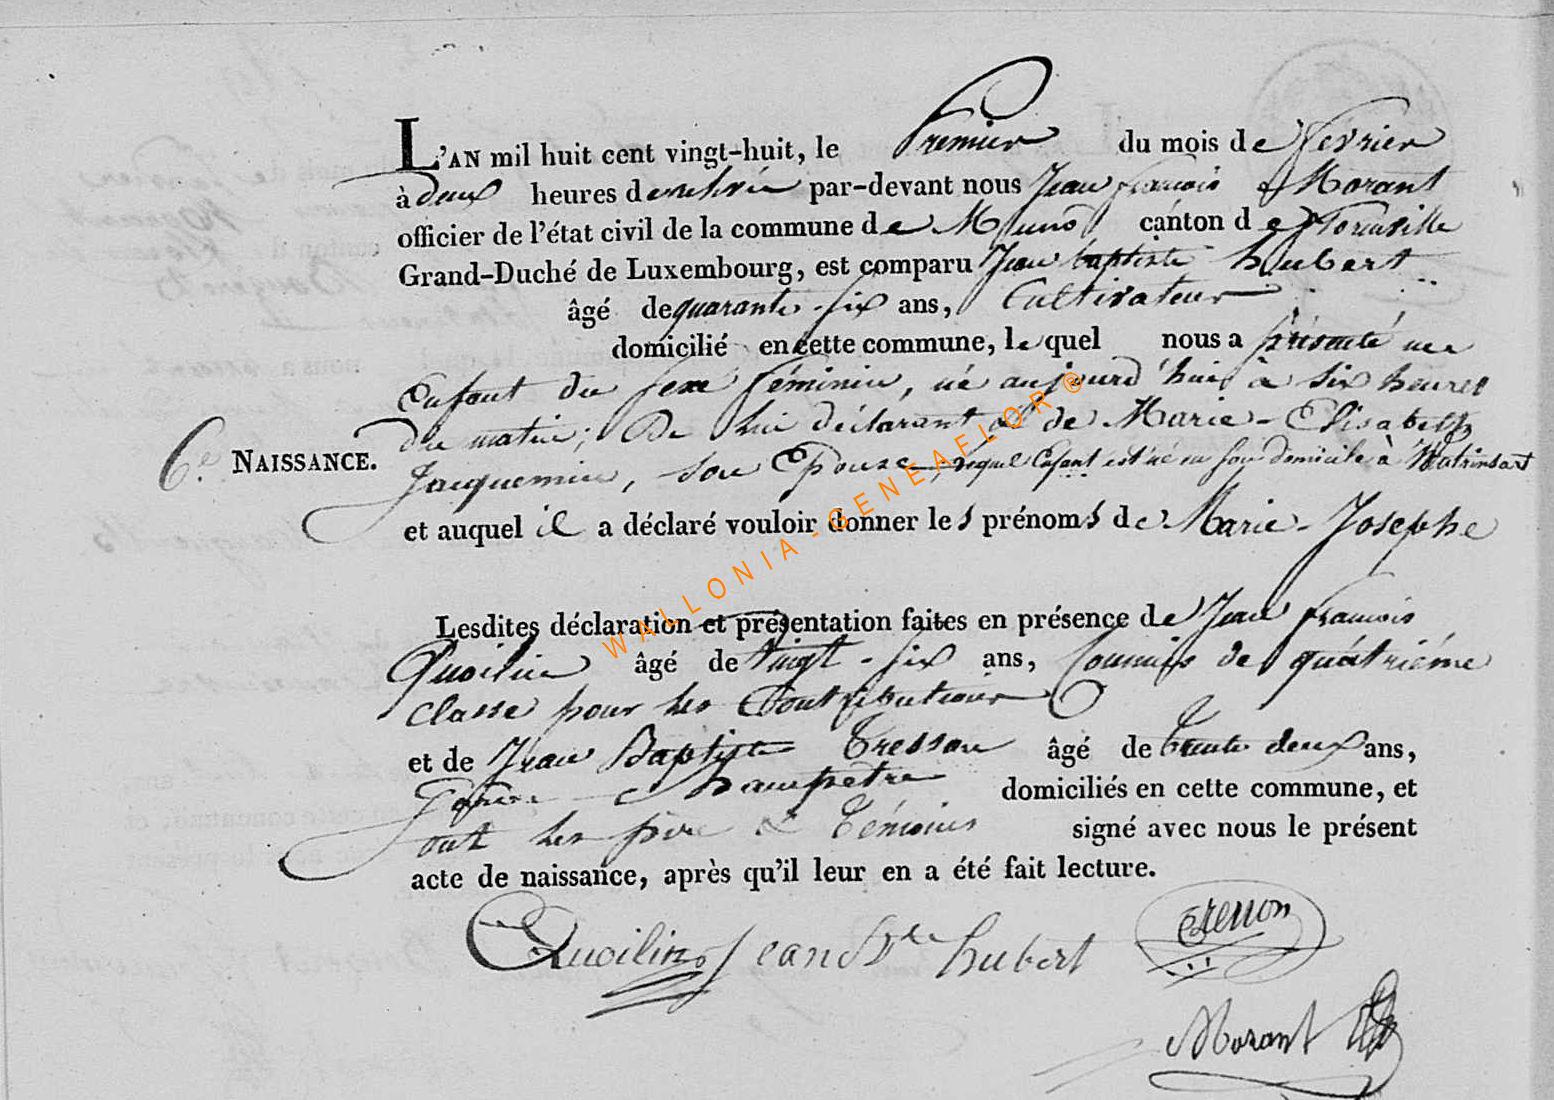 L'AN mil huit cent vingt-huit, le Premier du mois de fevrier
à deux heures de relevée par-devant nous Jean françois Morant
officier de l'état civil de la commune de Muno canton de florenville
Grand-Duché de Luxembourg, est comparu Jean baptiste hubert
âgé de quarante-six ans, Cultivateur
domicilié en cette commune, lequel nous a présenté un
Enfant du sexe féminin, né aujourd'hui à six heures
du matin; De lui déclarant et de Marie-Elisabeth
6.e NAISSANCE.
Jacquemin, son Epouse, lequel Enfant est né en son domicile à Watrinsart
et auquel il a déclaré vouloir donner les prénoms de Marie-Josephe
Lesdites déclaration et présentation faites en présence de Jean françois
Quoilin âgé de vingt-six ans, Commis de quatriéme
Classe pour les Contributions
et de Jean Baptiste Tresson âgé de trente deux ans,
Garde champetre domiciliés en cette commune, et
ont les père et Témoins signé avec nous le présent
acte de naissance, après qu'il leur en a été fait lecture.
Quoilin Jean Bte hubert
Morant
WALLONIA-GENEAELOR®